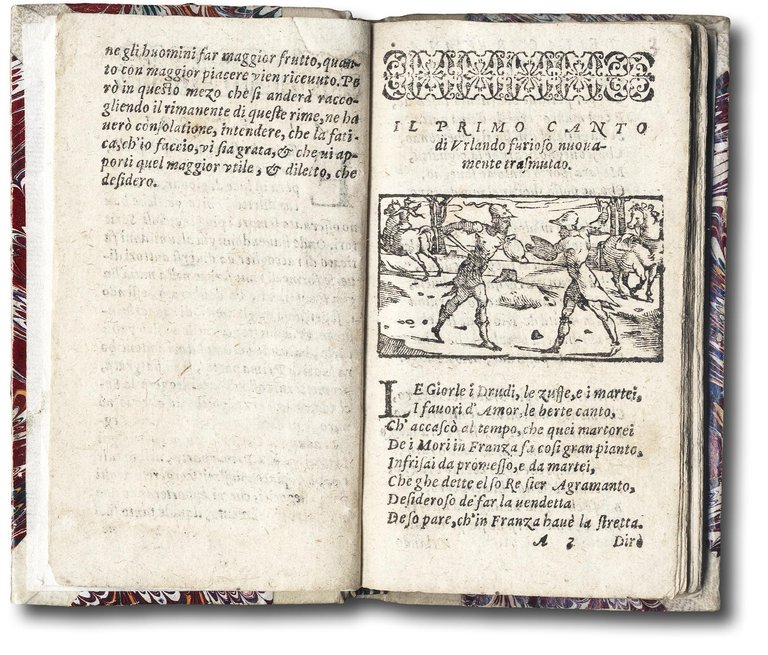 ne gli huomini far maggior frutto, quan-
to con maggior piacere vien riceuuto. Pe
rò in questo mezo che si anderà racco-
gliendo il rimanente di queste rime, ne ha
uerò consolatione, intendere, che la fati-
ca, ch'io faccio, vi sia grata, & che ui ap-
porti quel maggior vtile, & diletto, che
desidero.
IL PRIMO CANTO
di Vrlando furioso nuoua-
mente trasmutao.
LE Giorle i Drudi, le zuffe, e i martei,
I fauori d'Amor, le berte canto,
Ch'accascò al tempo, che quei martorei
De i Mori in Franza fa cosi gran pianto,
Infrisai da promesso, e da martei,
Che ghe dette el so Re sier Agramanto,
Desideroso de far la vendetta
De so pare, ch'in Franza hauè la stretta.
A 3 Dirè